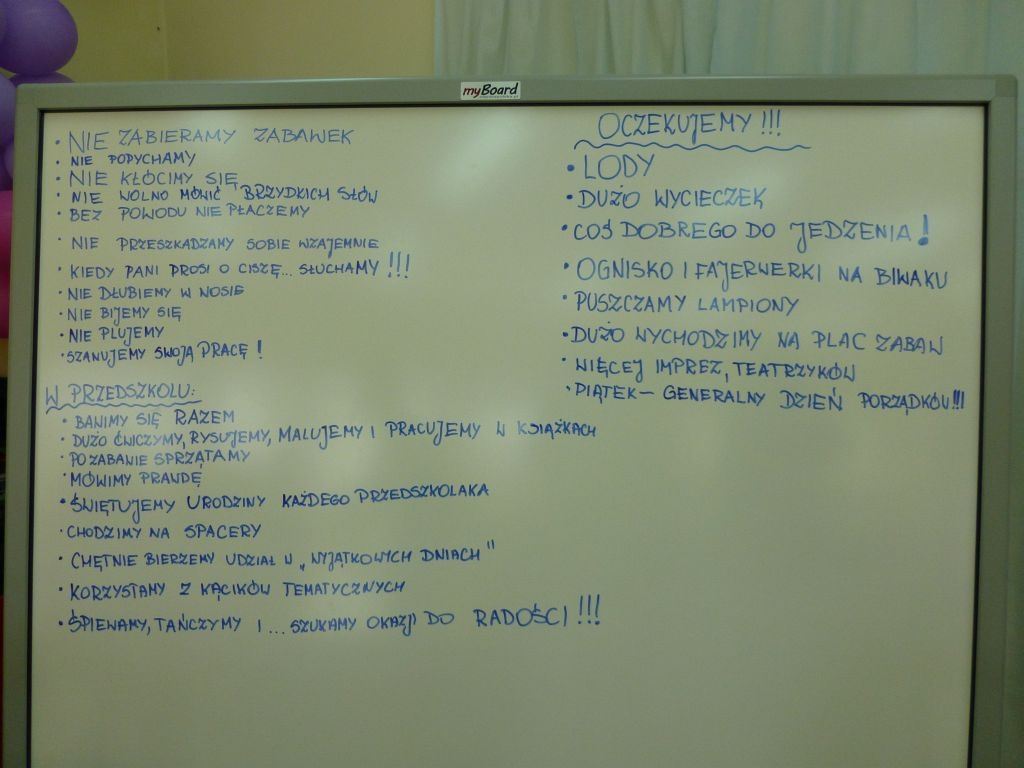 myBoard
• NIE ZABIERAMY ZABAWEK
• NIE POPYCHAMY
• NIE KŁÓCIMY SIĘ
• NIE WOLNO MÓWIĆ BRZYDKICH SŁÓW
• BEZ POWODU NIE PŁACZEMY
• NIE PRZESZKADZAMY SOBIE WZAJEMNIE
• KIEDY PANI PROSI O CISZĘ... SŁUCHAMY!!!
• NIE DŁUBIEMY W NOSIE
• NIE BIJEMY SIĘ
• NIE PLUJEMY
• SZANUJEMY SWOJĄ PRACĘ!
W PRZEDSZKOLU:
• BAWIMY SIĘ RAZEM
• DUŻO ĆWICZYMY, RYSUJEMY, MALUJEMY I PRACUJEMY W KSIĄŻKACH
• PO ZABAWIE SPRZĄTAMY
• MÓWIMY PRAWDĘ
• ŚWIĘTUJEMY URODZINY KAŻDEGO PRZEDSZKOLAKA
• CHODZIMY NA SPACERY
• CHĘTNIE BIERZEMY UDZIAŁ W „WYJĄTKOWYCH DNIACH"
• KORZYSTAMY Z KĄCIKÓW TEMATYCZNYCH
• ŚPIEWAMY, TAŃCZYMY I ... SZUKAMY OKAZJI DO RADOŚCI!!!
OCZEKUJEMY!!!
• LODY
• DUŻO WYCIECZEK
• COŚ DOBREGO DO JEDZENIA!
• OGNISKO I FAJERWERKI NA BIWAKU
• PUSZCZAMY LAMPIONY
• DUŻO WYCHODZIMY NA PLAC ZABAW
• WIĘCEJ IMPREZ, TEATRZYKÓW
• PIĄTEK – GENERALNY DZIEŃ PORZĄDKÓW!!!